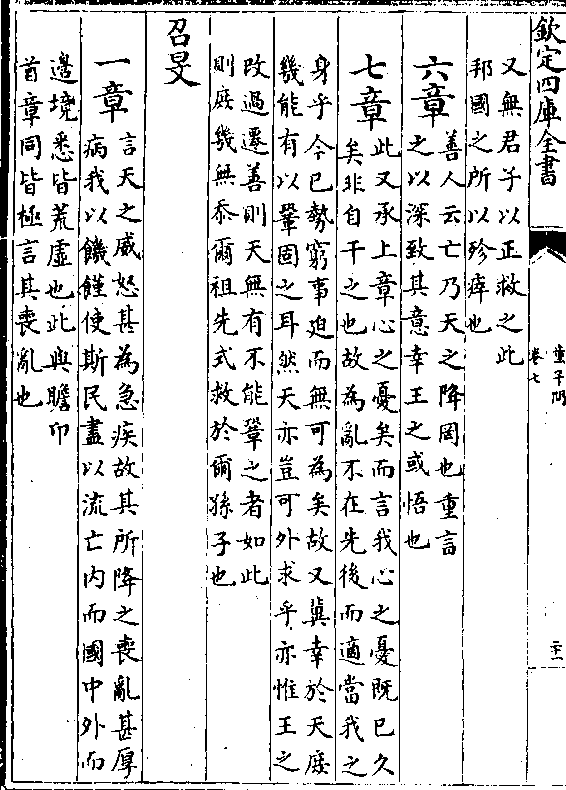 欽定四庫全書
童子問
卷七
二十一
又無君子以正救之此
邦國之所以殄瘁也
六章
善人云亡乃天之降罔也重言
之以深致其意幸王之或悟也
七章
此又承上章心之憂矣而言我心之憂既已久
矣非自千之也故為亂不在先後而適當我之
身乎今已勢窮事迫而無可為矣故又冀幸於天庶
幾能有以鞏固之耳然天亦豈可外求乎亦惟王之
改過遷善則天無有不能鞏之者如此
則庶幾無忝爾祖先式救於爾孫子也
召旻
一章
言天之威怒甚為急疾故其所降之喪亂甚厚
病我以饑饉使斯民盡以流亡内而國中外而
邊境悉皆荒虛也此與瞻卬
首章同皆極言其喪亂也